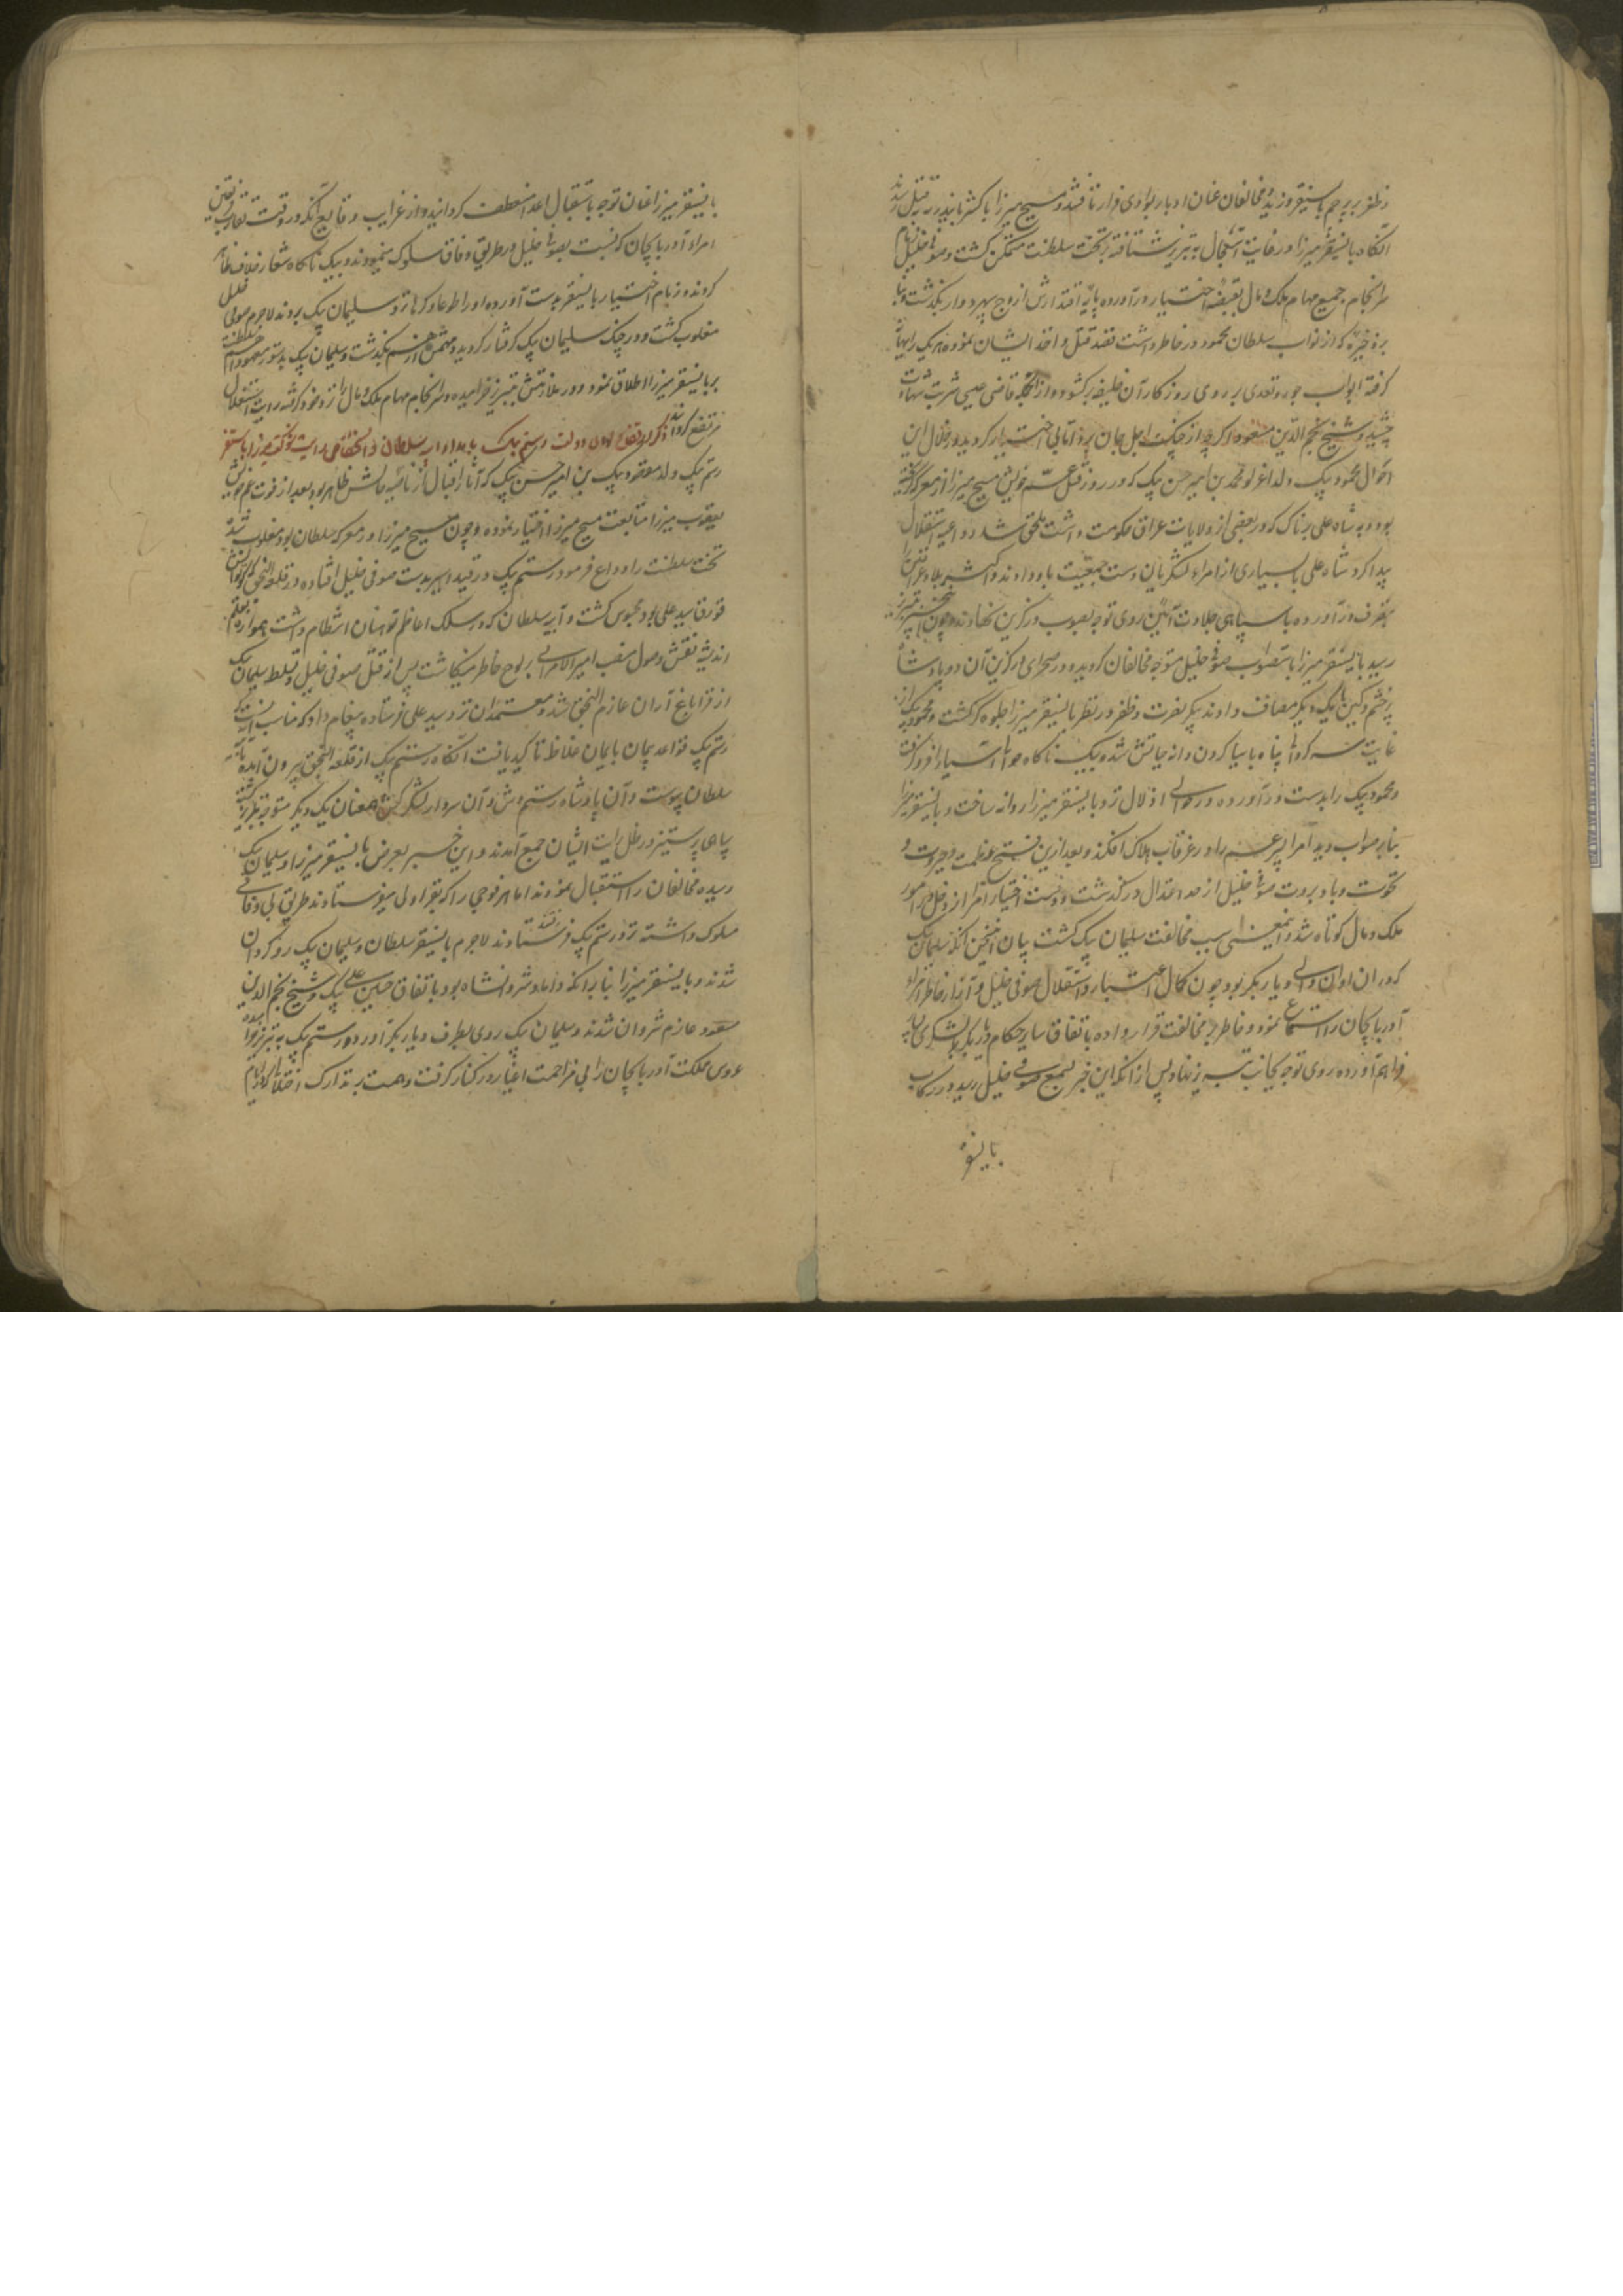 وظفر بر پرچم بایسنقر وزید مخالفان عنان ادبار بوادی فرار تافتند و مسیح میرزا با کشته بقتل رسید
آنگاه بایسنقر میرزا در غایت استعجال به تبریز شتافته بر تخت سلطنت متمکن کشت و صوفی خلیل زمام
سرانجام جمیع مهام ملک و مال بقبضه اختیار درآورده پایه اقتدارش از اوج سپهر دوار بگذشت و بنا
بر ذخیره که از نواب سلطان محمود در خاطر داشت قصد قتل و اخذ ایشان نموده هر یک را بهانه
کرفته ابواب جور و تعدی بر روی روزکار آن طایفه برکشود و از انجمله قاضی عیسی شربت شهادت
چشید و شیخ نجم الدین مسعود اکرچه از چنک اجل جان برد اما بی اختیار کردید و در خلال این
احوال محمود بیک ولد اغرلو محمد بن امیر حسن بیک که در روز قتل عم خویش مسیح میرزا از معرکه کریخته
بود و به شاه علی پرناک که در بعضی از ولایات عراق حکومت داشت ملحق شد و داعیه استقلال
پیدا کرد و شاه علی با بسیاری از امراء و لشکریان دست جمعیت باو دادند و اکثر بلاد عراقین را
بتصرف درآورده با سپاهی جلادت آئین روی توجه بصوب درکزین نهادند و چون این خبر به تبریز
رسید بایسنقر میرزا باستصواب صوفی خلیل متوجه مخالفان کردیده و در صحرای درکزین آن دو پادشاه
پر خشم و کین با یکدیگر مصاف دادند پیکر نصرت و ظفر در نظر بایسنقر میرزا جلوه کر کشت و محمود بیک از
غایت سرکردانی پناه باسیا کردن دانه حیاتش شده بیک ناکاه صوفی اسیا را فرو کرفت
و محمود بیک را بدست درآورده در اذلال نزد بایسنقر میرزا روانه ساخت و بایسنقر میرزا
بنابر صواب دید امرا پسر عم را در غرقاب هلاک افکند و بعد ازین فتح عظمت و جبروت و
نخوت و باد بروت صوفی خلیل از حد اعتدال درکذشت و دست اختیار امرا از دخل در امور
ملک و مال کوتاه شد و اینمعنی سبب مخالفت سلیمان بیک کشت بیان این سخن آنکه سلیمان بیک
که در ان اوان والی دیار بکر بود چون کمال اعتبار و استقلال صوفی خلیل و آزار خاطر امراء
آذربایجان را استماع نمود و خاطر بر مخالفت قرار داده باتفاق سایر حکام دیار بکر لشکری
فراهم آورده روی توجه بجانب تبریز نهاد و پس از آنکه این خبر بسمع صوفی خلیل رسید در رکاب
بایسنقر
بایسنقر میرزا عنان توجه باستقبال اعدا منعطف کردانید و از غرایب وقایع آنکه در وقت تقارب فریقین
امراء آذربایجان که نسبت بصوفی خلیل در طریق وفاق سلوک مینمودند بیک ناکاه شعار خلاف ظاهر
کردند و زمام اختیار بایسنقر بدست آورده او را طوعا و کرها نزد سلیمان بیک بردند لاجرم صوفی خلیل
مغلوب کشت و در چنک سلیمان بیک کرفتار کردید و مهمش از هم بکذشت و سلیمان بیک بدستور معهود اسم سلطنت
بر بایسنقر میرزا اطلاق نمود و در ملازمتش بتبریز خرامیده و سرانجام مهام ملک و مال را نزد خود کرفته رایت استقلال
مرتفع کرداند ذکر دولت رستم بیک
رستم بیک ولد مقصود بیک بن امیر حسن بیک که آثار اقبال از ناصیه حالش ظاهر بود بعد از فوت عم خویش
یعقوب میرزا متابعت مسیح میرزا اختیار نموده و چون مسیح میرزا در معرکه سلطان بود مغلوب شد
تخت سلطنت را وداع فرمود رستم بیک در قید اسر بدست صوفی خلیل افتاده در قلعه النجق که کوتوالش
قورقا سید علی بود محبوس کشت و آیبه سلطان که در سلک اعاظم ترکمانان انتظام داشت همواره بقلم
اندیشه نقش وصول منصب امیر الامرائی بر لوح خاطر مینکاشت پس از قتل صوفی خلیل و تسلط سلیمان بیک
از قراباغ آران عازم النجق شد و معتمدان نزد سید علی فرستاده پیغام داد که مناسب آنست که
رستم بیک قواعد پیمان بایمان غلاظ تاکید یافت آنکاه رستم بیک از قلعه النجق بیرون آمده بآیبه
سلطان پیوست و آن پادشاه رستم وش و آن سردار لشکر کش همعنان یکدیکر متوجه تبریز کشته
سپاهی پر ستیز در ظل رایت ایشان جمع آمدند و این خبر بعرض بایسنقر میرزا و سلیمان بیک
رسیده مخالفان را استقبال نمودند اما هر فوجی را که بقراولی میفرستادند طریق بی وفائی
مسلوک داشته نزد رستم بیک فرستادند لاجرم بایسنقر سلطان و سلیمان بیک رو کردان
شدند و بایسنقر میرزا بنابر آنکه داماد شروانشاه بود باتفاق حسین علی بیک و شیخ نجم الدین
مسعود عازم شروان شدند و سلیمان بیک روی بطرف دیار بکر آورد و رستم بیک به تبریز
عروس مملکت آذربایجان را بی مزاحمت اغیار در کنار کرفت و همت بر تدارک اختلال